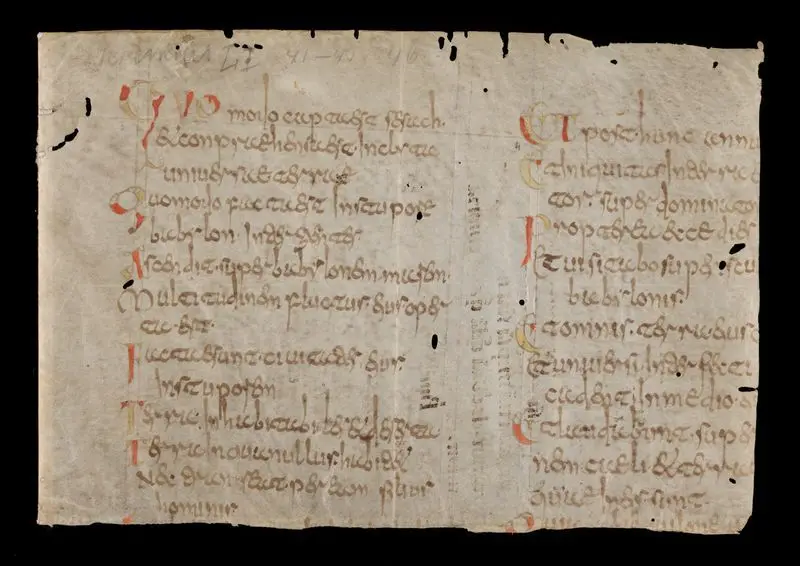 Quomodo capta est sesach.
& conprehensa est. Incleta
universae terrae
Quomodo facta est In stupore
babylon. Inter gentes
Ascendit super babylonem mare.
Multitudinem fluctus. eius oper
ta est.
Factae sunt civitates. eius.
In stuporem
Terra. Inhabitabiles & deserta
Terra In qua nullus. habit&
Nec transeat per eam filius
hominis
Et post hunc annu
Et Iniquitas In terra
tor. super dominato
Propterea ecce dies
Et visitabo super. scu
babylonis.
Et omnis. terra eius
Et universi. Interfecti
cadent. In medio.
Et laudabunt. super
nem caeli & terra
quae In eis. sunt.